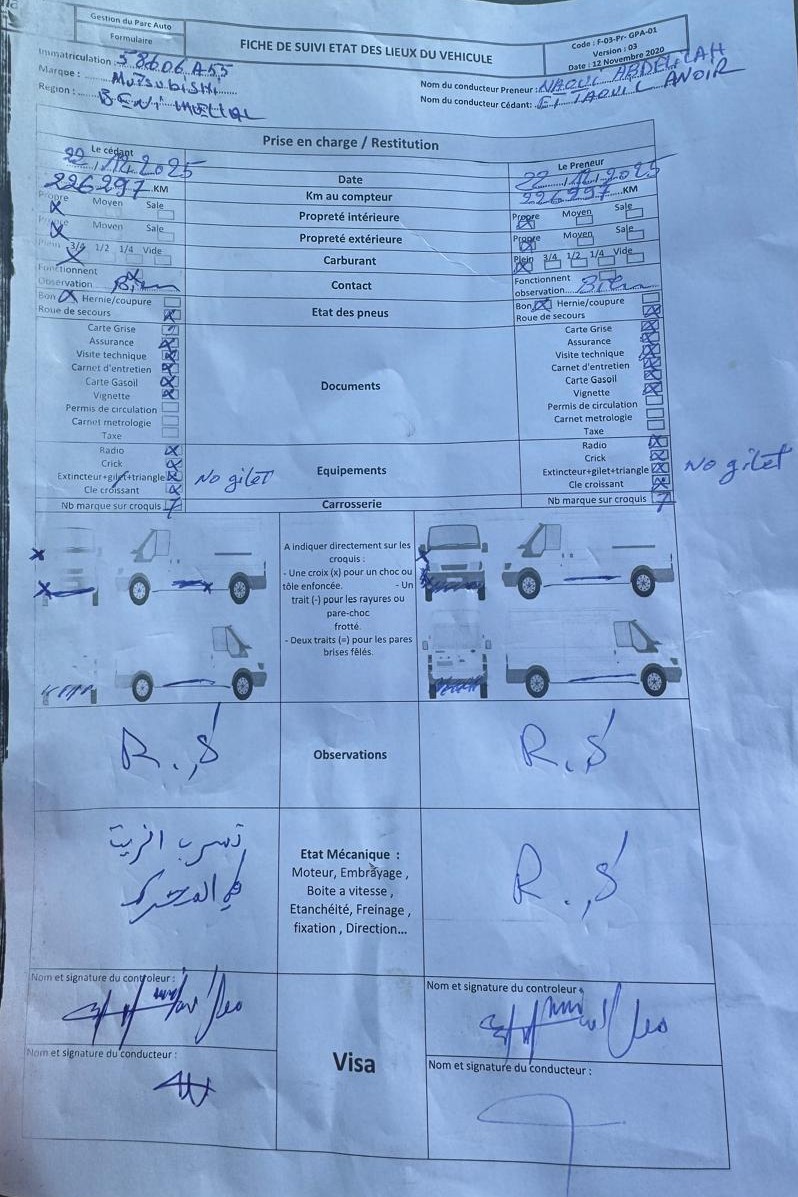 Gestion du Parc Auto
Formulaire
FICHE DE SUIVI ETAT DES LIEUX DU VEHICULE
Code : F-03-Pr- GPA-01
Version : 03
Date : 12 Novembre 2020
Immatriculation : 58606 A55
Marque : MiTSUBiSHi
Region : BENi MELLAL
Nom du conducteur Preneur : NAOUi ABDELILAH
Nom du conducteur Cédant: ET TAOUiL ANOIR
Prise en charge / Restitution
Le cédant Le Preneur
22/12/2025 Date 22/12/2025
226297 KM Km au compteur 226297 KM
Propre Moyen Sale Propreté intérieure Propre Moyen Sale
Propre Moyen Sale Propreté extérieure Propre Moyen Sale
Plein 3/4 1/2 1/4 Vide Carburant Plein 3/4 1/2 1/4 Vide
Fonctionnent Contact Fonctionnent
Observation Bien observation Bien
Bon Hernie/coupure Etat des pneus Bon Hernie/coupure
Roue de secours Roue de secours
Carte Grise Carte Grise
Assurance Assurance
Visite technique Visite technique
Carnet d'entretien Carnet d'entretien
Carte Gasoil Documents Carte Gasoil
Vignette Vignette
Permis de circulation Permis de circulation
Carnet metrologie Carnet metrologie
Taxe Taxe
Radio Radio
Crick Crick
Extincteur+gilet+triangle No gilet Equipements Extincteur+gilet+triangle No gilet
Cle croissant Cle croissant
Nb marque sur croquis 7 Carrosserie Nb marque sur croquis 7
A indiquer directement sur les
croquis :
- Une croix (x) pour un choc ou
tôle enfoncée. - Un
trait (-) pour les rayures ou
pare-choc
frotté.
- Deux traits (=) pour les pares
brises fêlés.
R.S Observations R.S
تسرب الزيت
في المحرك
Etat Mécanique :
Moteur, Embrayage ,
Boite a vitesse ,
Etanchéité, Freinage ,
fixation , Direction...
R.S
Nom et signature du controleur : Nom et signature du controleur :
Nom et signature du conducteur : Visa Nom et signature du conducteur :